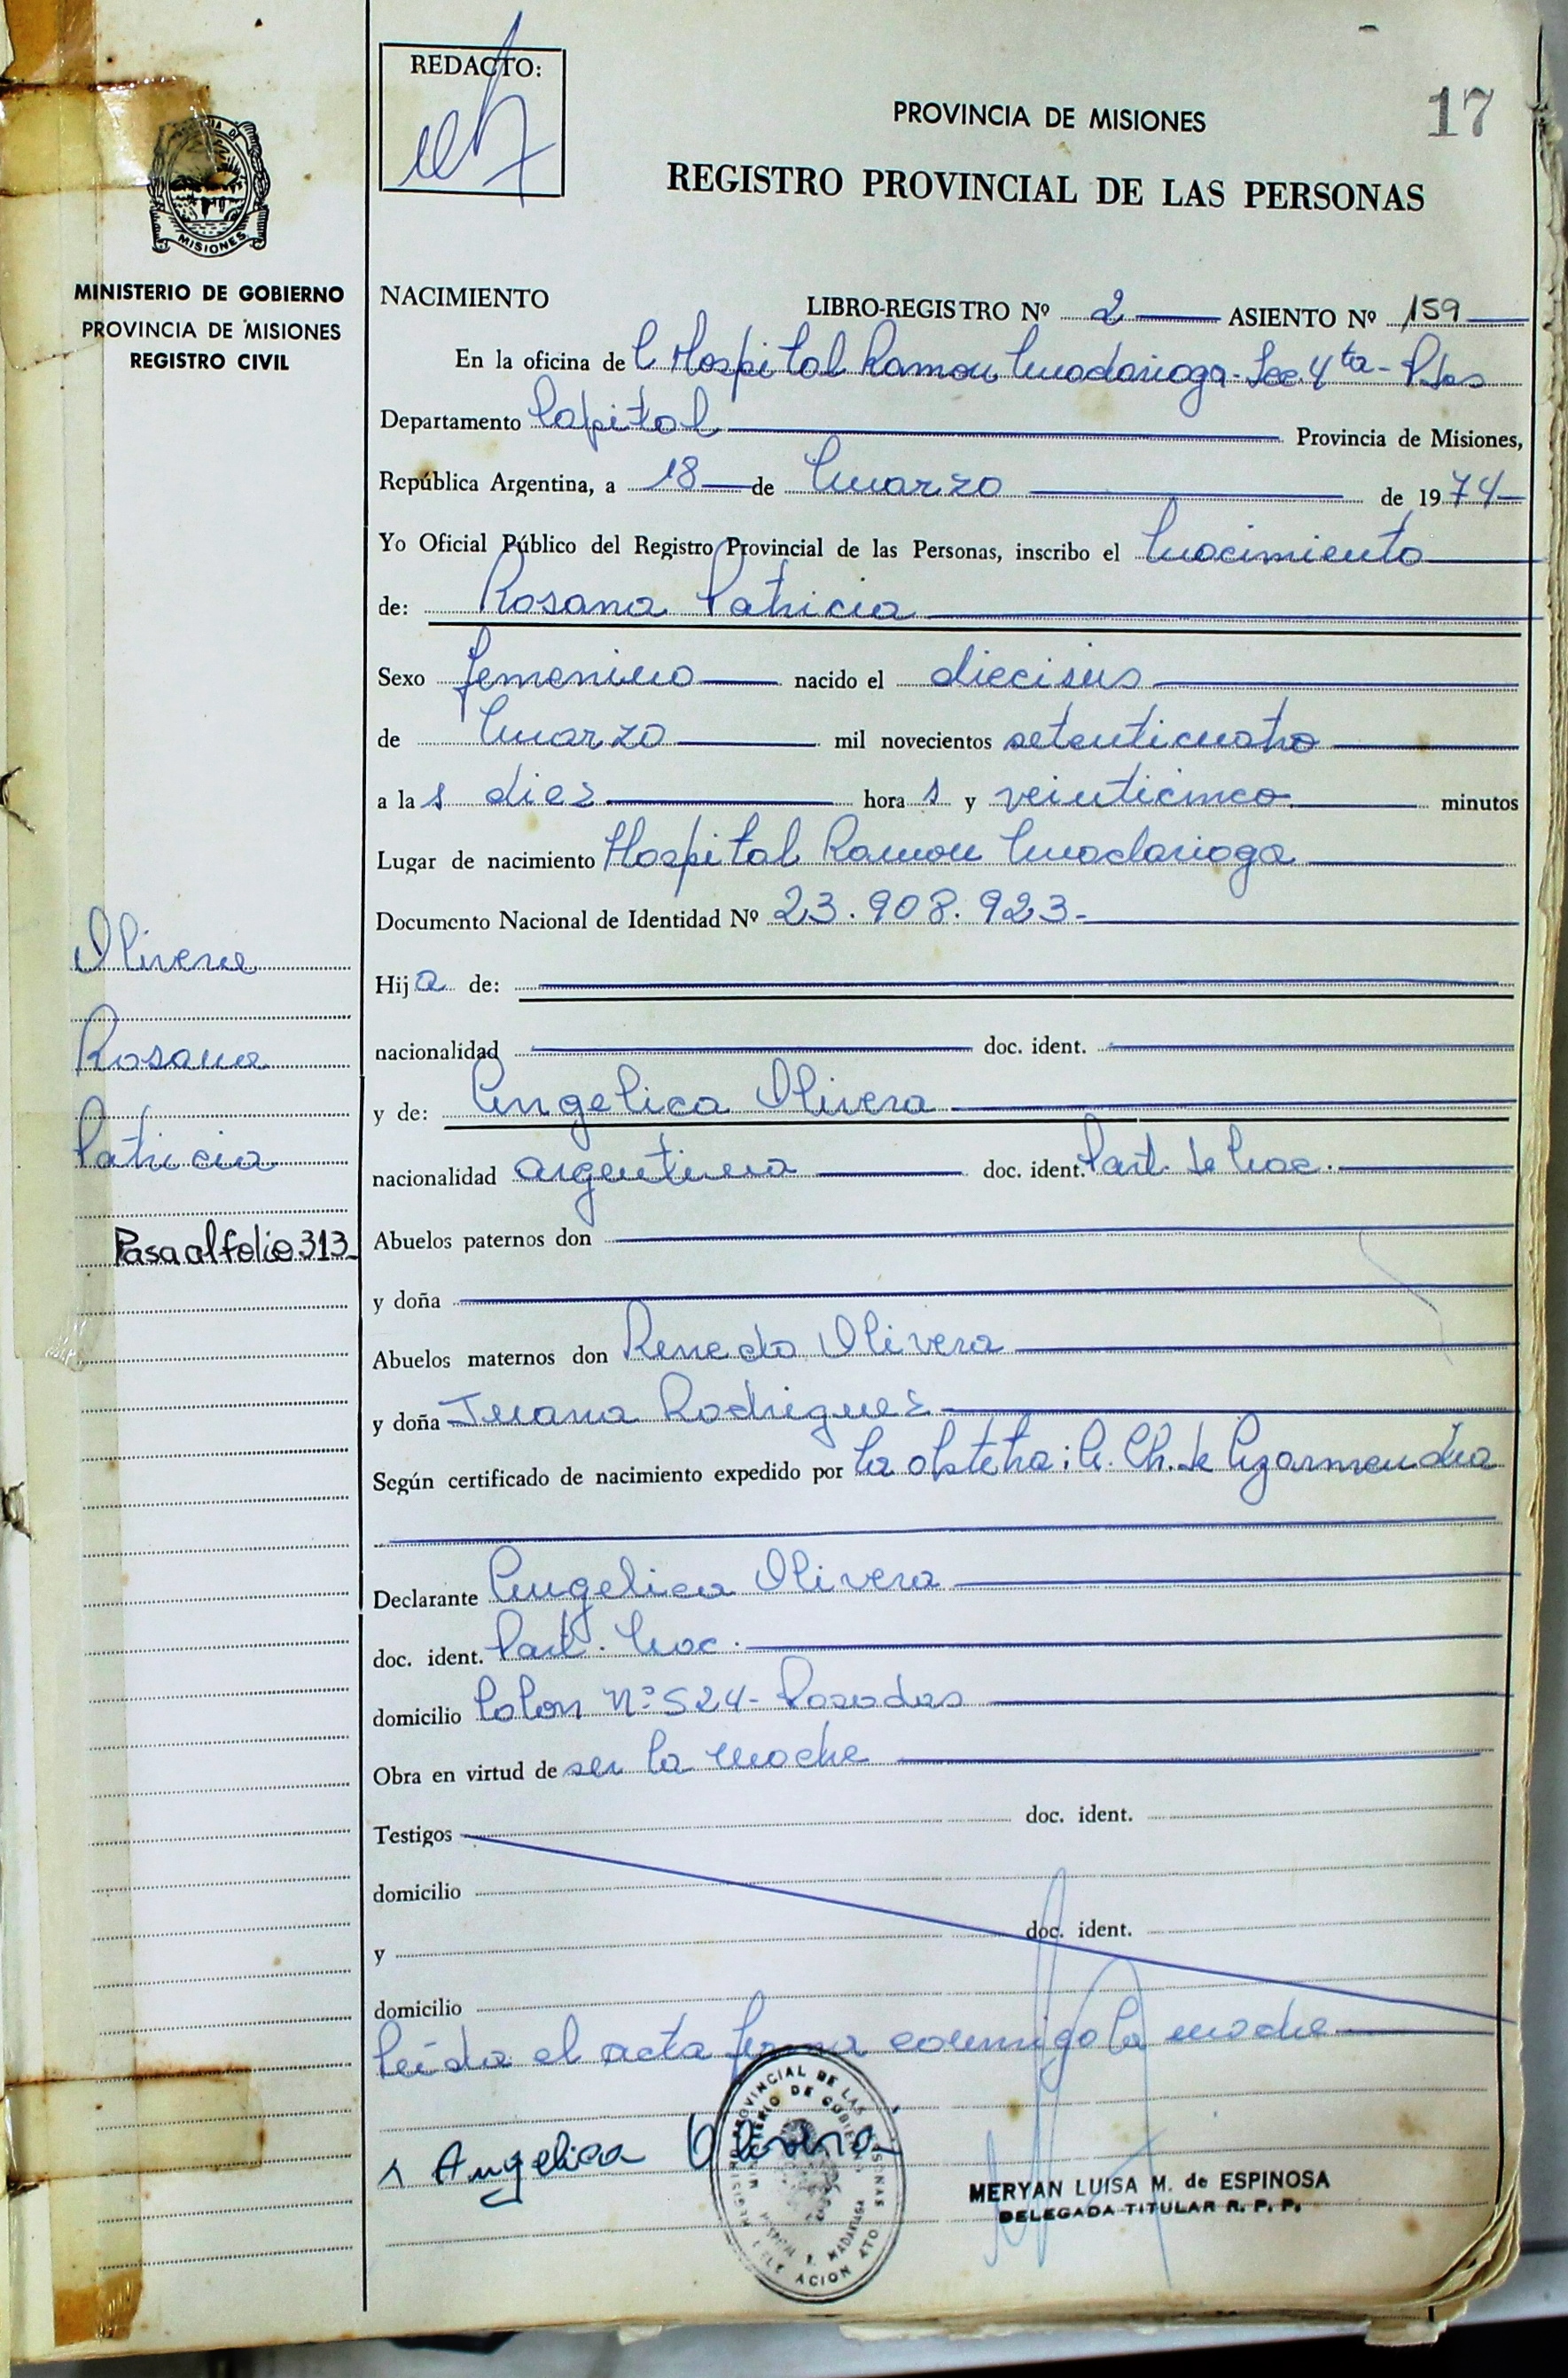 REDACTO:
PROVINCIA DE MISIONES
17
REGISTRO PROVINCIAL DE LAS PERSONAS
MISIONES
MINISTERIO DE GOBIERNO
PROVINCIA DE MISIONES
REGISTRO CIVIL
NACIMIENTO LIBRO-REGISTRO Nº 2 ASIENTO Nº 159
En la oficina de l Hospital Ramon Madariaga - Sec. 4ta - Pdas
Departamento Capital Provincia de Misiones,
República Argentina, a 18 de Marzo de 1974
Yo Oficial Público del Registro Provincial de las Personas, inscribo el Nacimiento
de: Rosana Patricia
Sexo femenino nacido el dieciseis
de Marzo mil novecientos setenticuatro
a las diez horas y veinticinco minutos
Lugar de nacimiento Hospital Ramon Madariaga
Documento Nacional de Identidad Nº 23.908.923-
Olivera
Hija de:
Rosana
nacionalidad doc. ident.
y de: Angelica Olivera
Patricia
nacionalidad argentina doc. ident. Part. de Nac.
Pasa al folio 313
Abuelos paternos don
y doña
Abuelos maternos don Renedo Olivera
y doña Juana Rodriguez
Según certificado de nacimiento expedido por la obstetra: A. Ch. de Azarmendia
Declarante Angelica Olivera
doc. ident. Part. Nac.
domicilio Colon Nº 524 - Posadas
Obra en virtud de ser la madre
Testigos doc. ident.
domicilio
y doc. ident.
domicilio
leida el acta firma conmigo la madre
Angelica Olivera
MERYAN LUISA M. de ESPINOSA
DELEGADA TITULAR R. P. P.